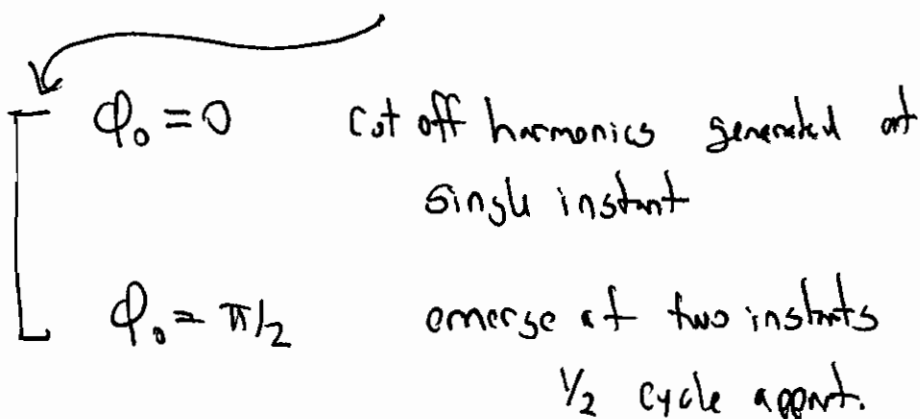 φ₀ = 0 cut off harmonics generated at
single instant
φ₀ = π/2 emerge at two instants
1/2 cycle appart.